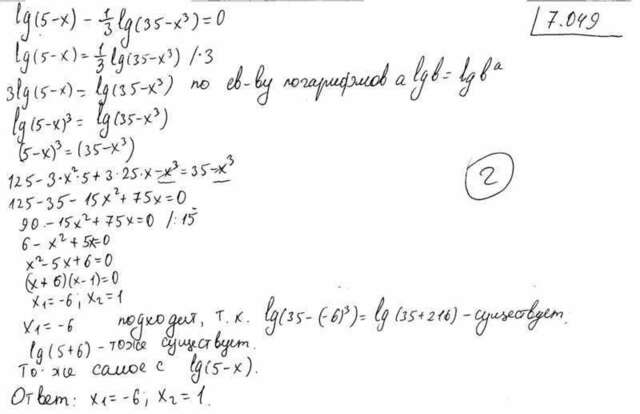 lg(5-x) - 1/3 lg(35-x³)=0
7.049
lg(5-x) = 1/3 lg(35-x³) /·3
3lg(5-x) = lg(35-x³) по св-ву логарифмов a lgb = lgbᵃ
lg(5-x)³ = lg(35-x³)
(5-x)³ = (35-x³)
125-3·x²·5+3·25·x-x³=35-x³
2
125-35-15x²+75x=0
90-15x²+75x=0 /:15
6-x²+5x=0
x²-5x+6=0
(x+6)(x-1)=0
x₁=-6; x₂=1
x₁=-6 подходит, т.к. lg(35-(-6)³)=lg(35+216)-существует.
lg(5+6)-тоже существует.
То же самое с lg(5-x).
Ответ: x₁=-6; x₂=1.